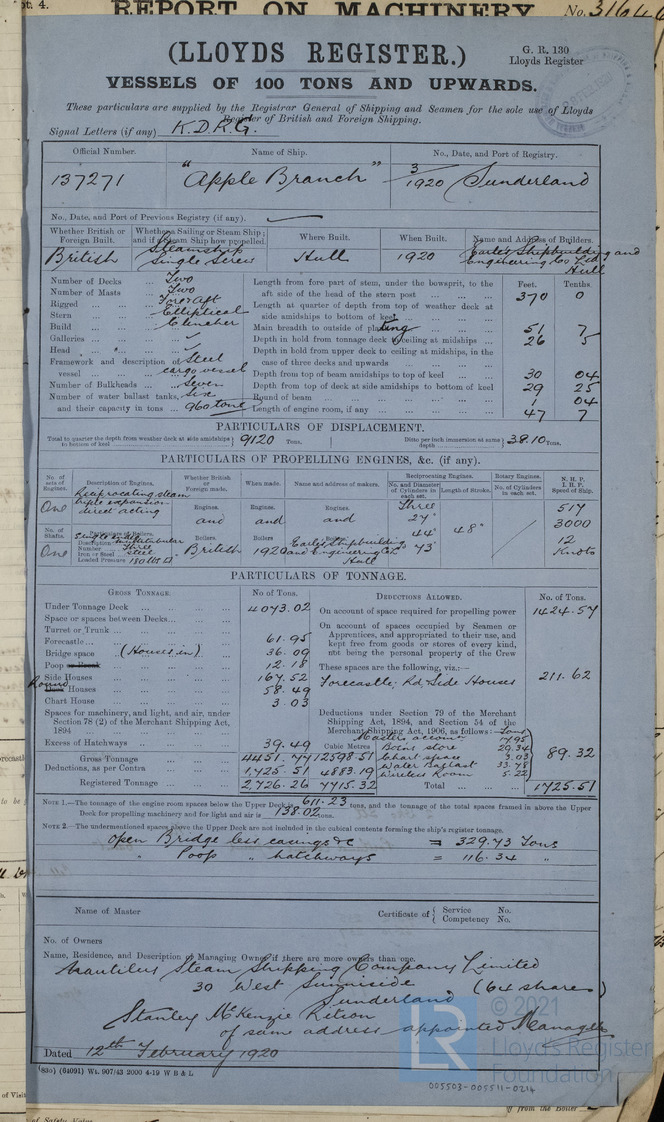 pt. 4.
REPORT ON MACHINERY
No. 31646
(LLOYDS REGISTER.)
G. R. 130
Lloyds Register
VESSELS OF 100 TONS AND UPWARDS.
These particulars are supplied by the Registrar General of Shipping and Seamen for the sole use of Lloyds
Register of British and Foreign Shipping.
Signal Letters (if any) K.D.R.G.
Official Number. Name of Ship. No., Date, and Port of Registry.
137271 "Apple Branch" 3/1920 Sunderland
No., Date, and Port of Previous Registry (if any).
Whether British or Foreign Built. Whether a Sailing or Steam Ship; and if a Steam Ship how propelled. Where Built. When Built. Name and Address of Builders.
British Steamship Single Screw Hull 1920 Earle's Shipbuilding and Engineering Co Ltd Hull
Number of Decks ... Two
Number of Masts ... Two
Rigged ... Fore & Aft
Stern ... Elliptical
Build ... Clencher
Galleries ... ✓
Head ... ✓
Framework and description of vessel ... Steel cargo vessel
Number of Bulkheads ... Seven
Number of water ballast tanks, and their capacity in tons ... Six 960 tons
Feet. Tenths.
Length from fore part of stem, under the bowsprit, to the aft side of the head of the stern post 370 0
Length at quarter of depth from top of weather deck at side amidships to bottom of keel
Main breadth to outside of plating 51 7
Depth in hold from tonnage deck to ceiling at midships 26 5
Depth in hold from upper deck to ceiling at midships, in the case of three decks and upwards
Depth from top of beam amidships to top of keel 30 04
Depth from top of deck at side amidships to bottom of keel 29 25
Round of beam 1 04
Length of engine room, if any 47 7
PARTICULARS OF DISPLACEMENT.
Total to quarter the depth from weather deck at side amidships to bottom of keel } 9120 Tons. Ditto per inch immersion at same depth } 38.10 Tons.
PARTICULARS OF PROPELLING ENGINES, &c. (if any).
No. of sets of Engines. Description of Engines. Whether British or Foreign made. When made. Name and address of makers. Reciprocating Engines. No. and Diameter of Cylinders in each set. Length of Stroke. Rotary Engines. No. of Cylinders in each set. N. H. P. I. H. P. Speed of Ship.
One Reciprocating steam triple expansion direct acting
Engines. and Engines. and Engines. and
Three 27" 44" 73" 48" 517 3000 12 Knots
No. of Shafts. One
Description
Number Three
Iron or Steel Steel
Loaded Pressure 180 lbs □"
Boilers British Boilers 1920 Boilers Earle's Shipbuilding and Engineering Co Ld Hull
PARTICULARS OF TONNAGE.
GROSS TONNAGE. No. of Tons.
Under Tonnage Deck 4073.02
Space or spaces between Decks
Turret or Trunk
Forecastle 61.95
Bridge space (Houses in) 36.09
Poop or Break 12.18
Side Houses 167.52
Round Deck Houses 58.49
Chart House 3.03
Spaces for machinery, and light, and air, under Section 78 (2) of the Merchant Shipping Act, 1894
Excess of Hatchways 39.49
Cubic Metres
Gross Tonnage 4451.77 12598.51
Deductions, as per Contra 1,725.51 4883.19
Registered Tonnage 2,726.26 7715.32
DEDUCTIONS ALLOWED. No. of Tons.
On account of space required for propelling power 1424.57
On account of spaces occupied by Seamen or Apprentices, and appropriated to their use, and kept free from goods or stores of every kind, not being the personal property of the Crew
These spaces are the following, viz.:—
Forecastle; Rd, Side Houses 211.62
Deductions under Section 79 of the Merchant Shipping Act, 1894, and Section 54 of the Merchant Shipping Act, 1906, as follows:— Tons
Master's accom 17.95
Bosn's store 29.34
Chart space 3.03
Water Ballast 33.78
Wireless Room 5.22
89.32
Total 1725.51
NOTE 1.—The tonnage of the engine room spaces below the Upper Deck is 611.23 tons, and the tonnage of the total spaces framed in above the Upper
Deck for propelling machinery and for light and air is 138.02 tons.
NOTE 2.—The undermentioned spaces above the Upper Deck are not included in the cubical contents forming the ship's register tonnage.
Open Bridge less casings &c = 329.73 Tons
" Poop " hatchways = 116.34 "
Name of Master Certificate of { Service No. Competency No.
No. of Owners
Name, Residence, and Description of Managing Owner if there are more owners than one.
Nautilus Steam Shipping Company Limited
30 West Sunniside (64 shares)
Sunderland
Stanley McKenzie Ritson
of same address appointed Manager
Dated 12th February 1920
(830) (64091) Wt. 907/43 2000 4-19 W B & L
LR
© 2021
Lloyd's Register
Foundation
005503-005511-0214
of Safety Valve
from the Boiler